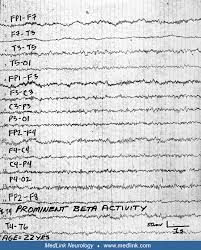 FP1-F7
F7-T3
T3-T5
T5-O1
FP1-F3
F3-C3
C3-P3
P3-O1
FP2-F4
F4-C4
C4-P4
P4-O2
FP2-F8
PROMINENT BETA ACTIVITY
T4-T6
AGE=22YRS
1s
MedLink Neurology • www.medlink.com